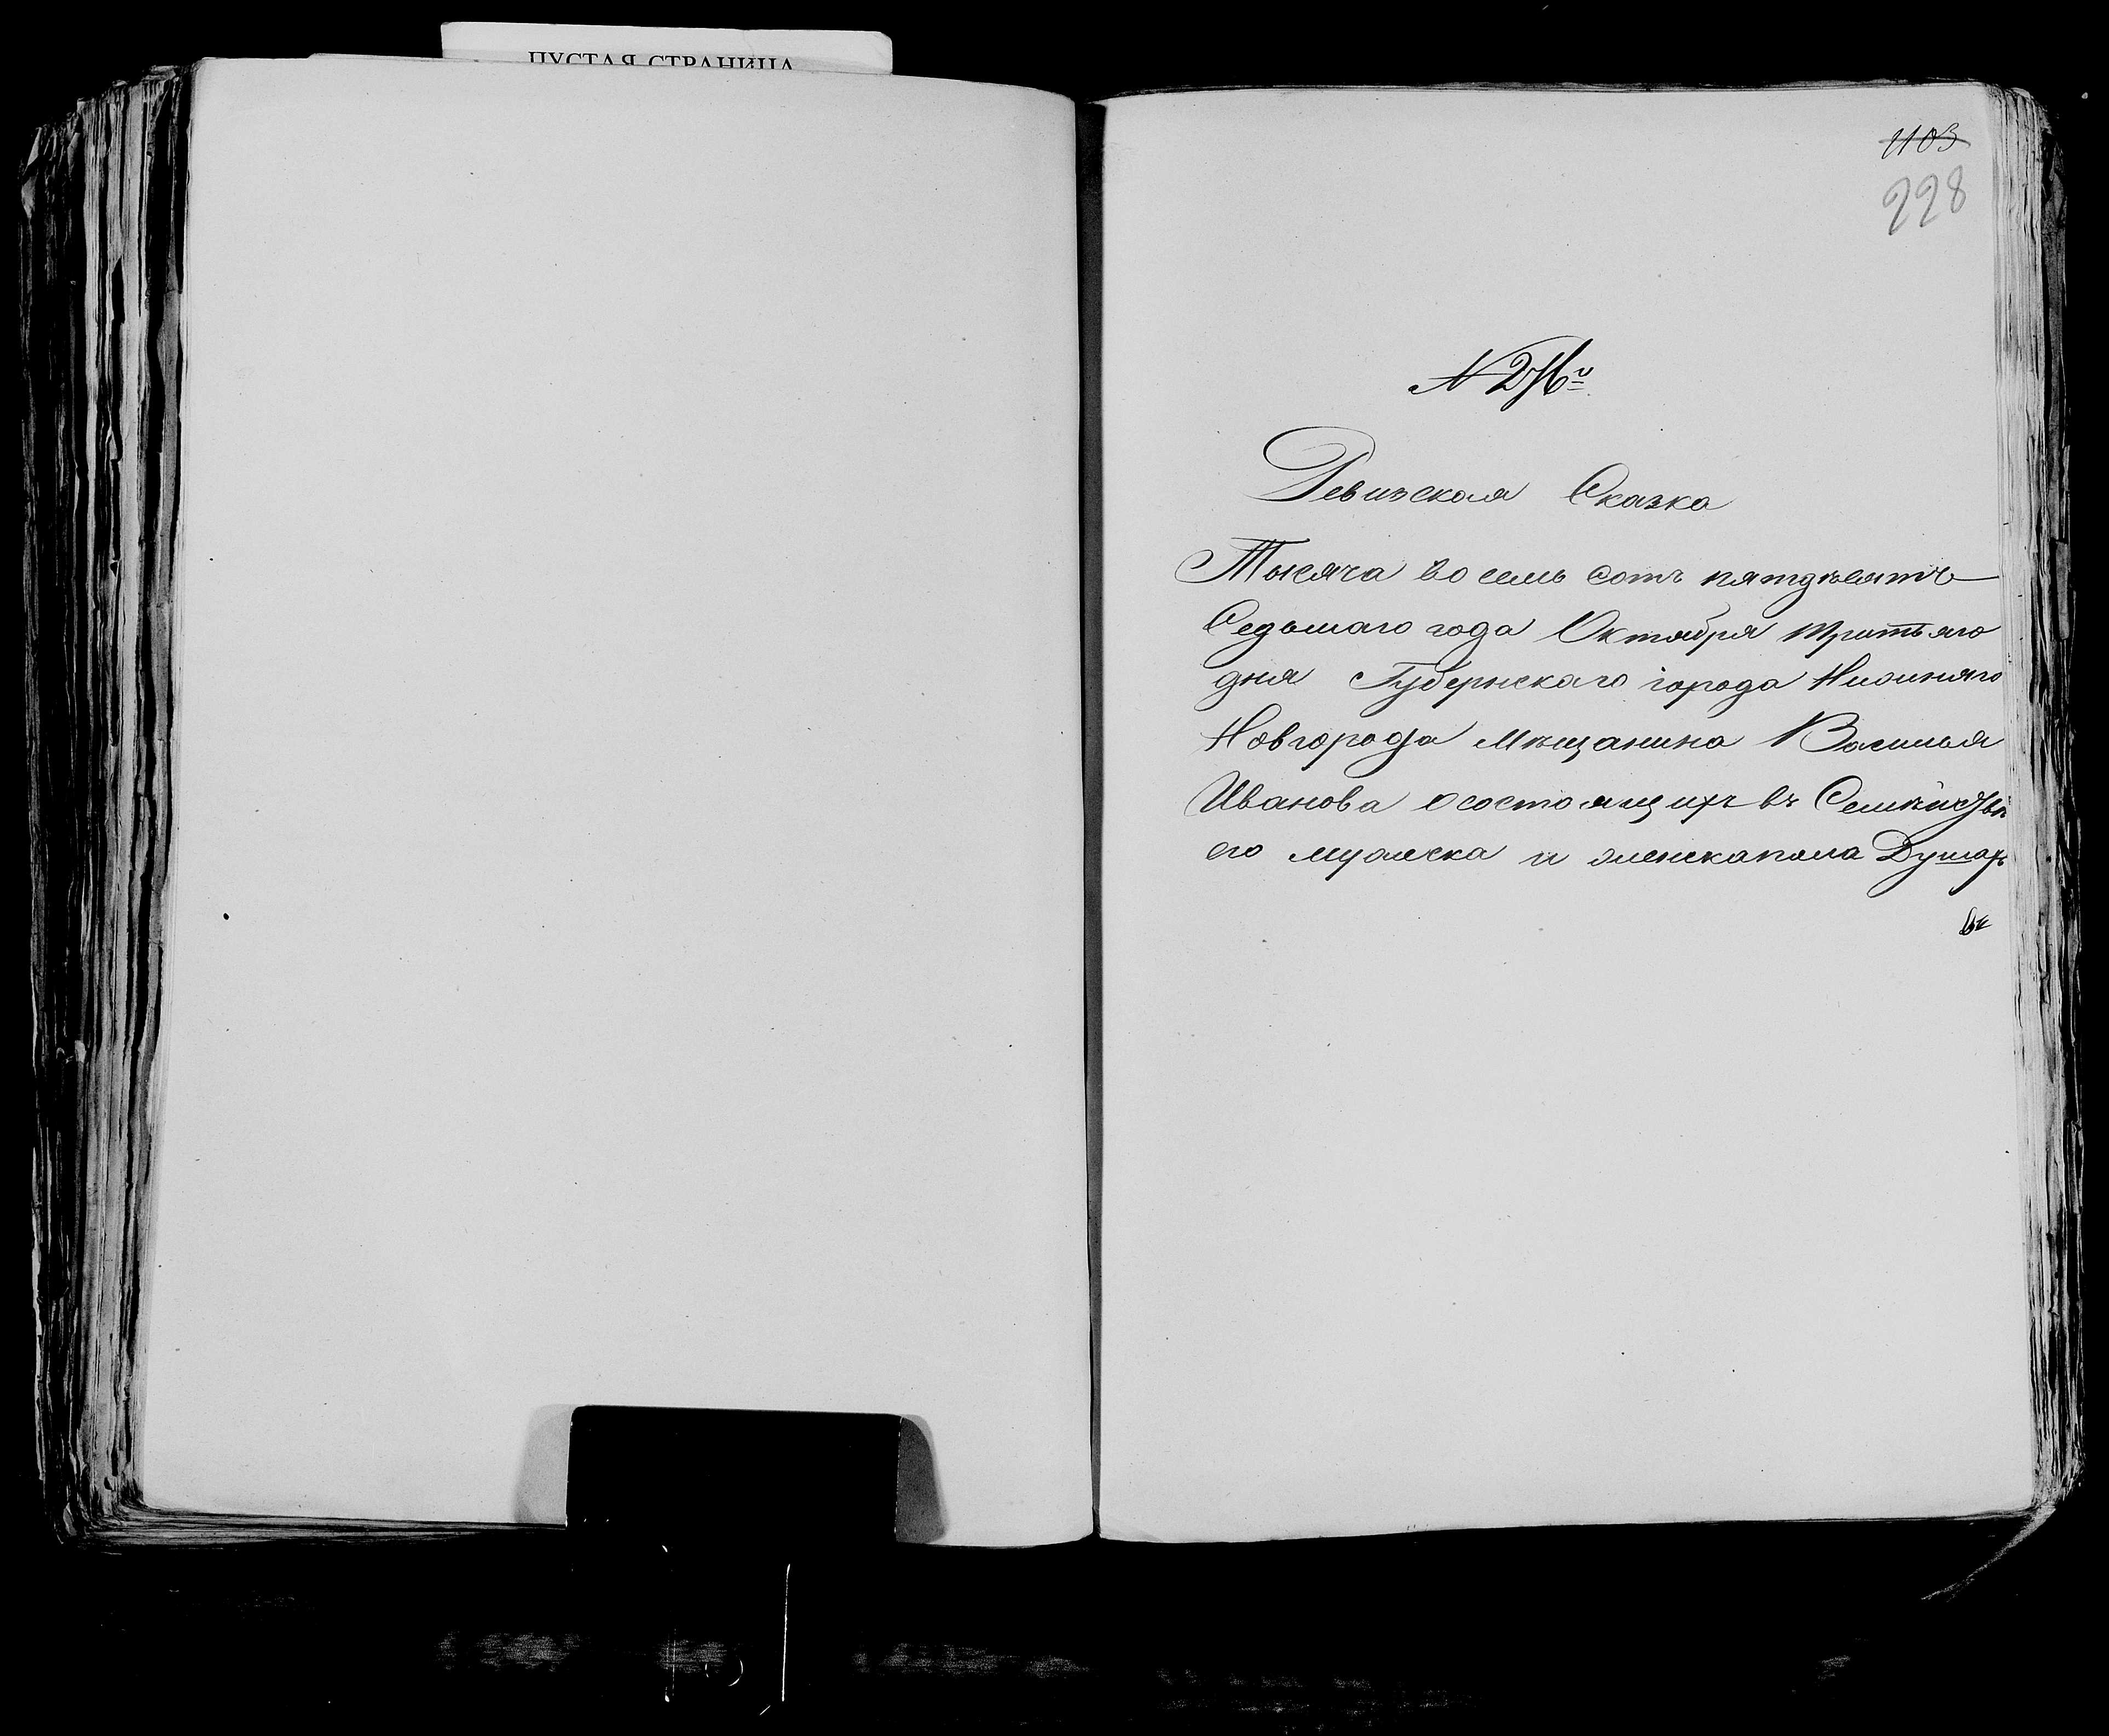 ПУСТАЯ СТРАНИЦА
1103
228
Ревизская Сказка
Тысяча восемь сотъ пятдѣсятъ
Седьмаго года Октября третьяго
дня Губернскаго города Нижняго
Новгорода Мѣщанина Василья
Иванова о состоящихъ въ Семѣйствѣ
его мужеска и женска пола Душахъ